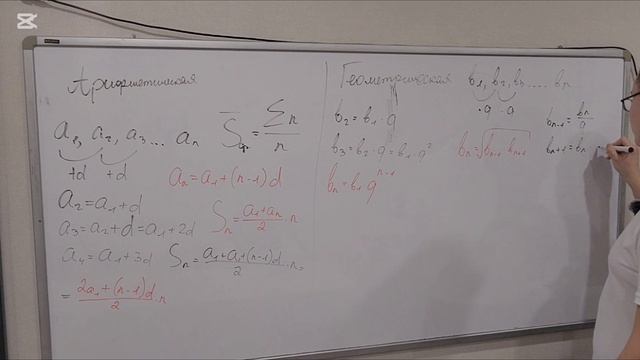 Арифметическая
a₁, a₂, a₃ ... aₙ
+d +d
S = Σn / n
aₙ = a₁ + (n-1)d
a₂ = a₁ + d
a₃ = a₂ + d = a₁ + 2d
Sₙ = (a₁ + aₙ) / 2 · n
a₄ = a₁ + 3d
Sₙ = (a₁ + a₁ + (n-1)d) / 2 · n =
= (2a₁ + (n-1)d) / 2 · n
Геометрическая
b₁, b₂, b₃ .... bₙ
·q ·q
b₂ = b₁ · q
b₃ = b₂ · q = b₁ · q²
bₙ = b₁ qⁿ⁻¹
bₙ = √(bₙ₋₁ · bₙ₊₁)
bₙ₋₁ = bₙ / q
bₙ₊₁ = bₙ